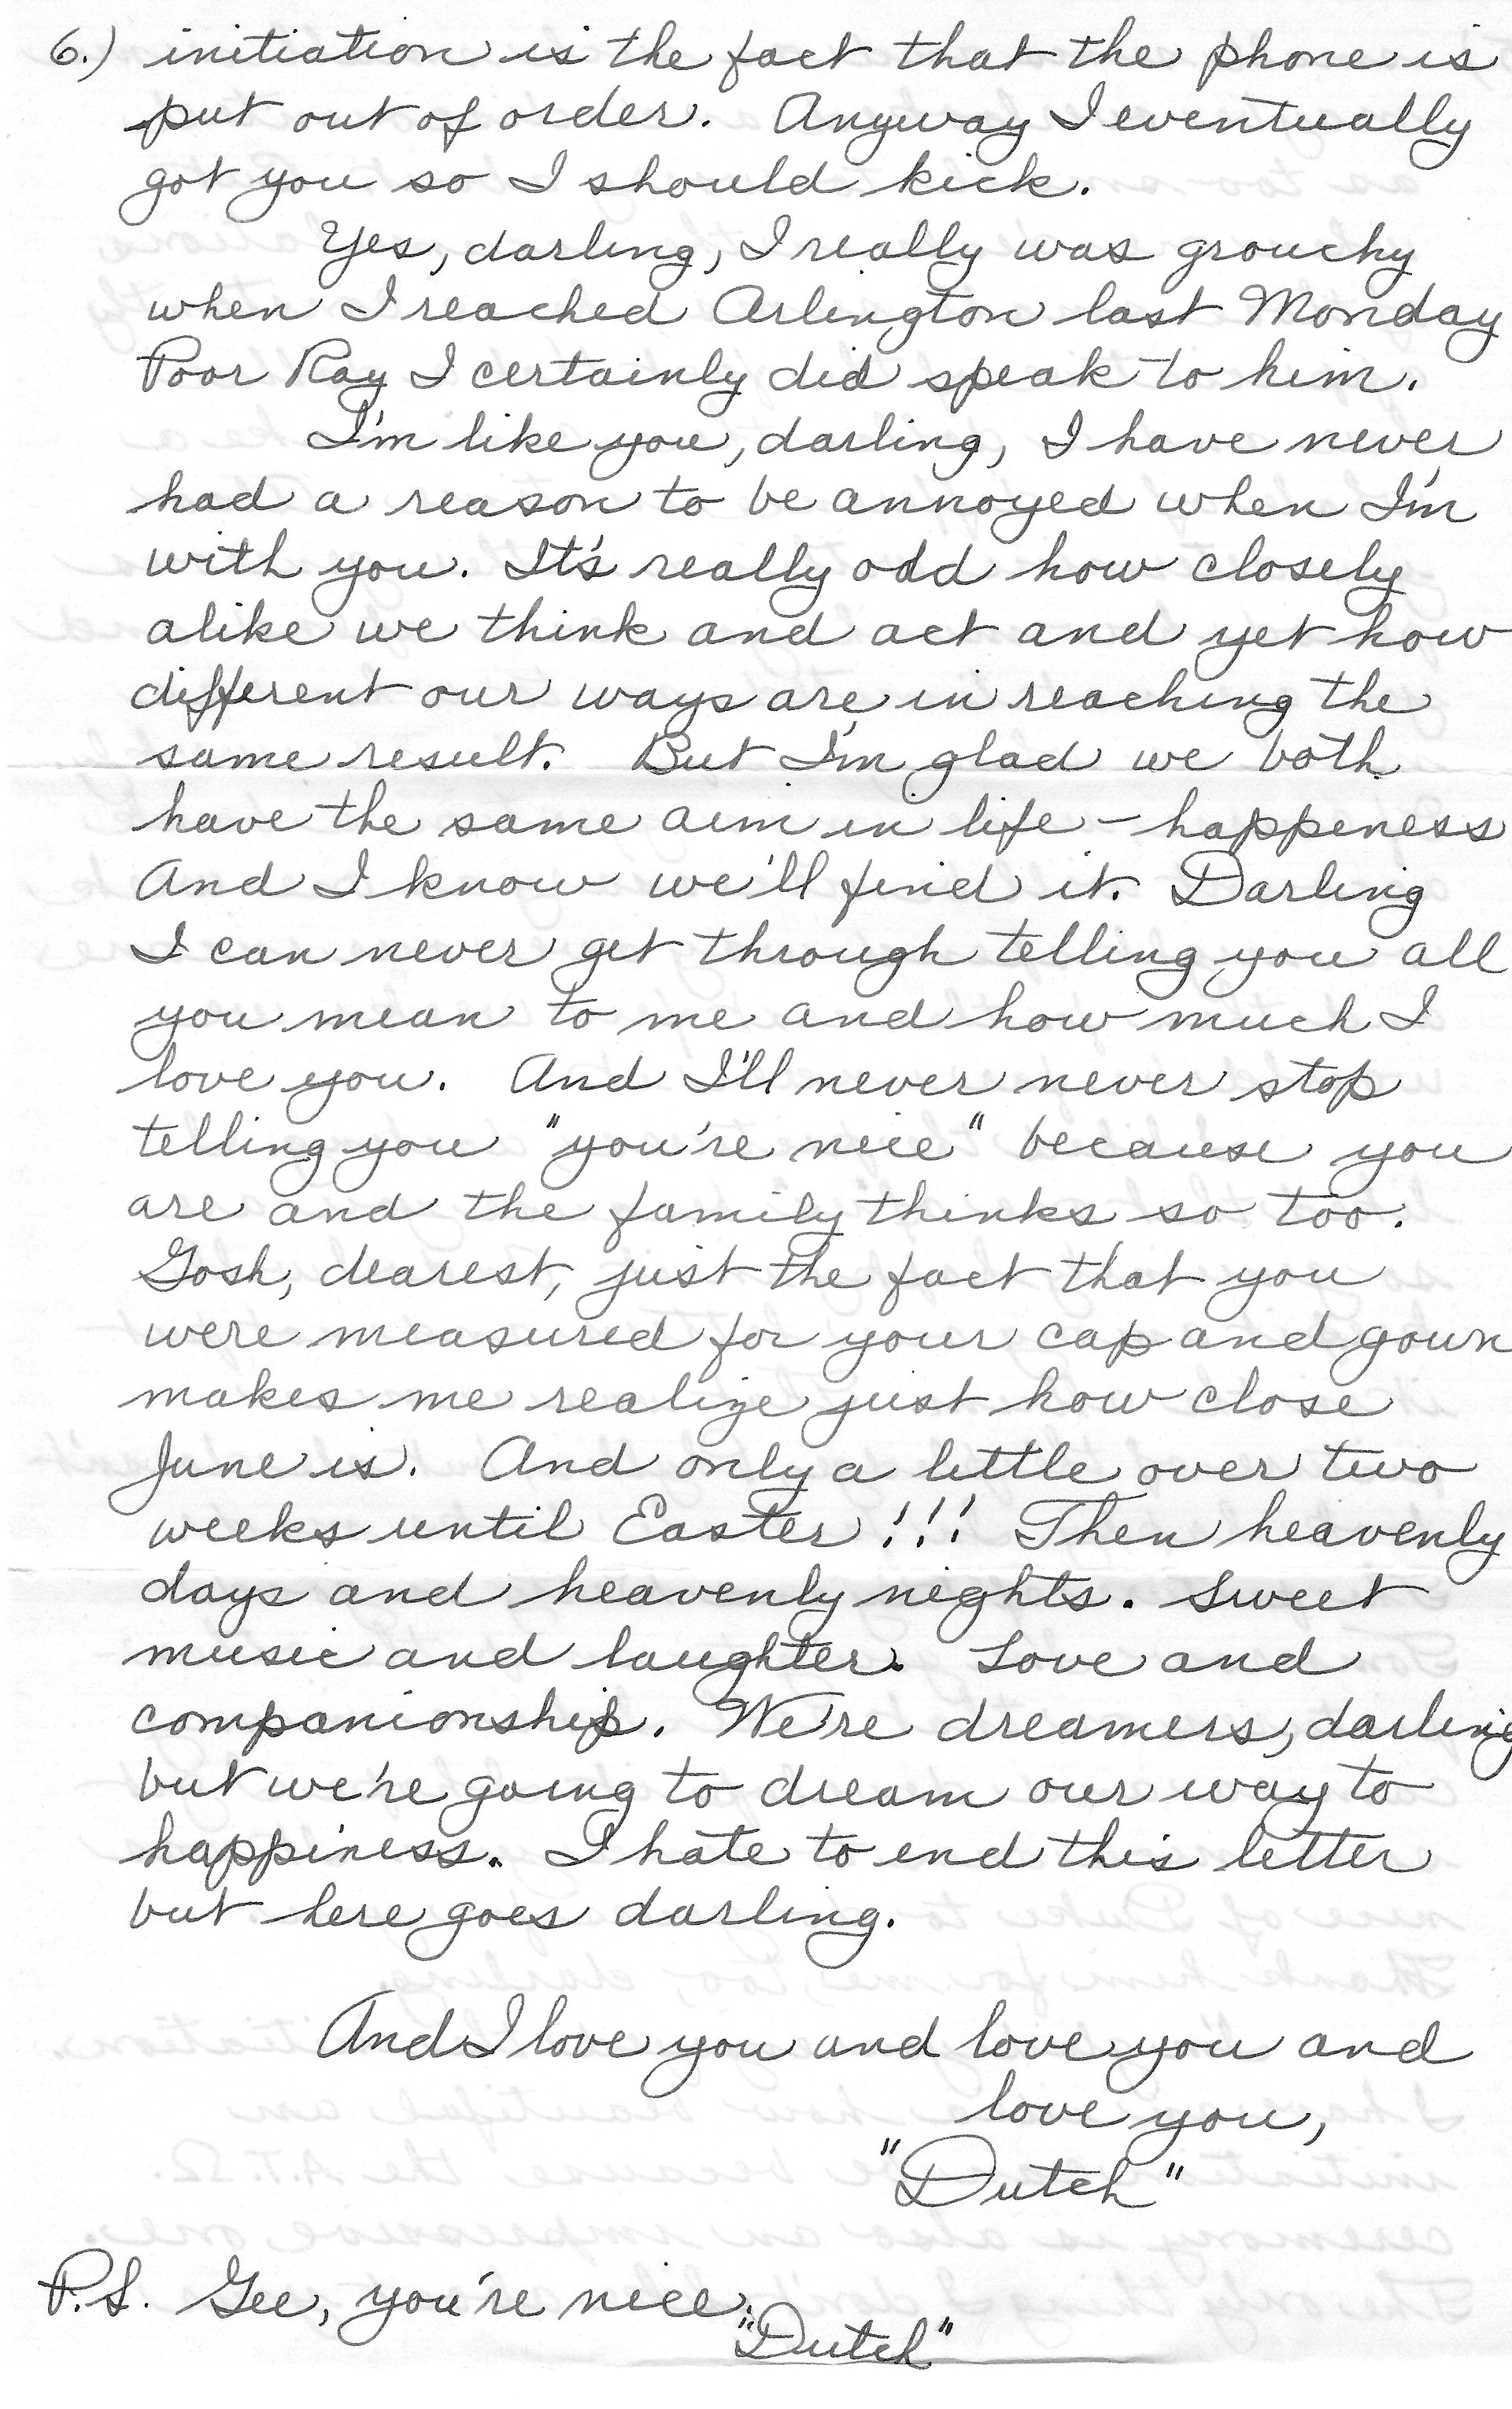 6.) initiation is the fact that the phone is
put out of order. Anyway I eventually
got you so I should kick.
Yes, darling, I really was grouchy
when I reached Arlington last Monday
Poor Ray I certainly did speak to him.
I'm like you, darling, I have never
had a reason to be annoyed when I'm
with you. It's really odd how closely
alike we think and act and yet how
different our ways are in reaching the
same result. But I'm glad we both
have the same aim in life - happiness
And I know we'll find it. Darling
I can never get through telling you all
you mean to me and how much I
love you. And I'll never never stop
telling you "you're nice" because you
are and the family thinks so too.
Gosh, dearest, just the fact that you
were measured for your cap and gown
makes me realize just how close
June is. And only a little over two
weeks until Easter!!! Then heavenly
days and heavenly nights. Sweet
music and laughter. Love and
companionship. We're dreamers, darling
but we're going to dream our way to
happiness. I hate to end this letter
but here goes darling.
And I love you and love you and
love you,
"Dutch"
P.S. Gee, you're nice.
"Dutch"